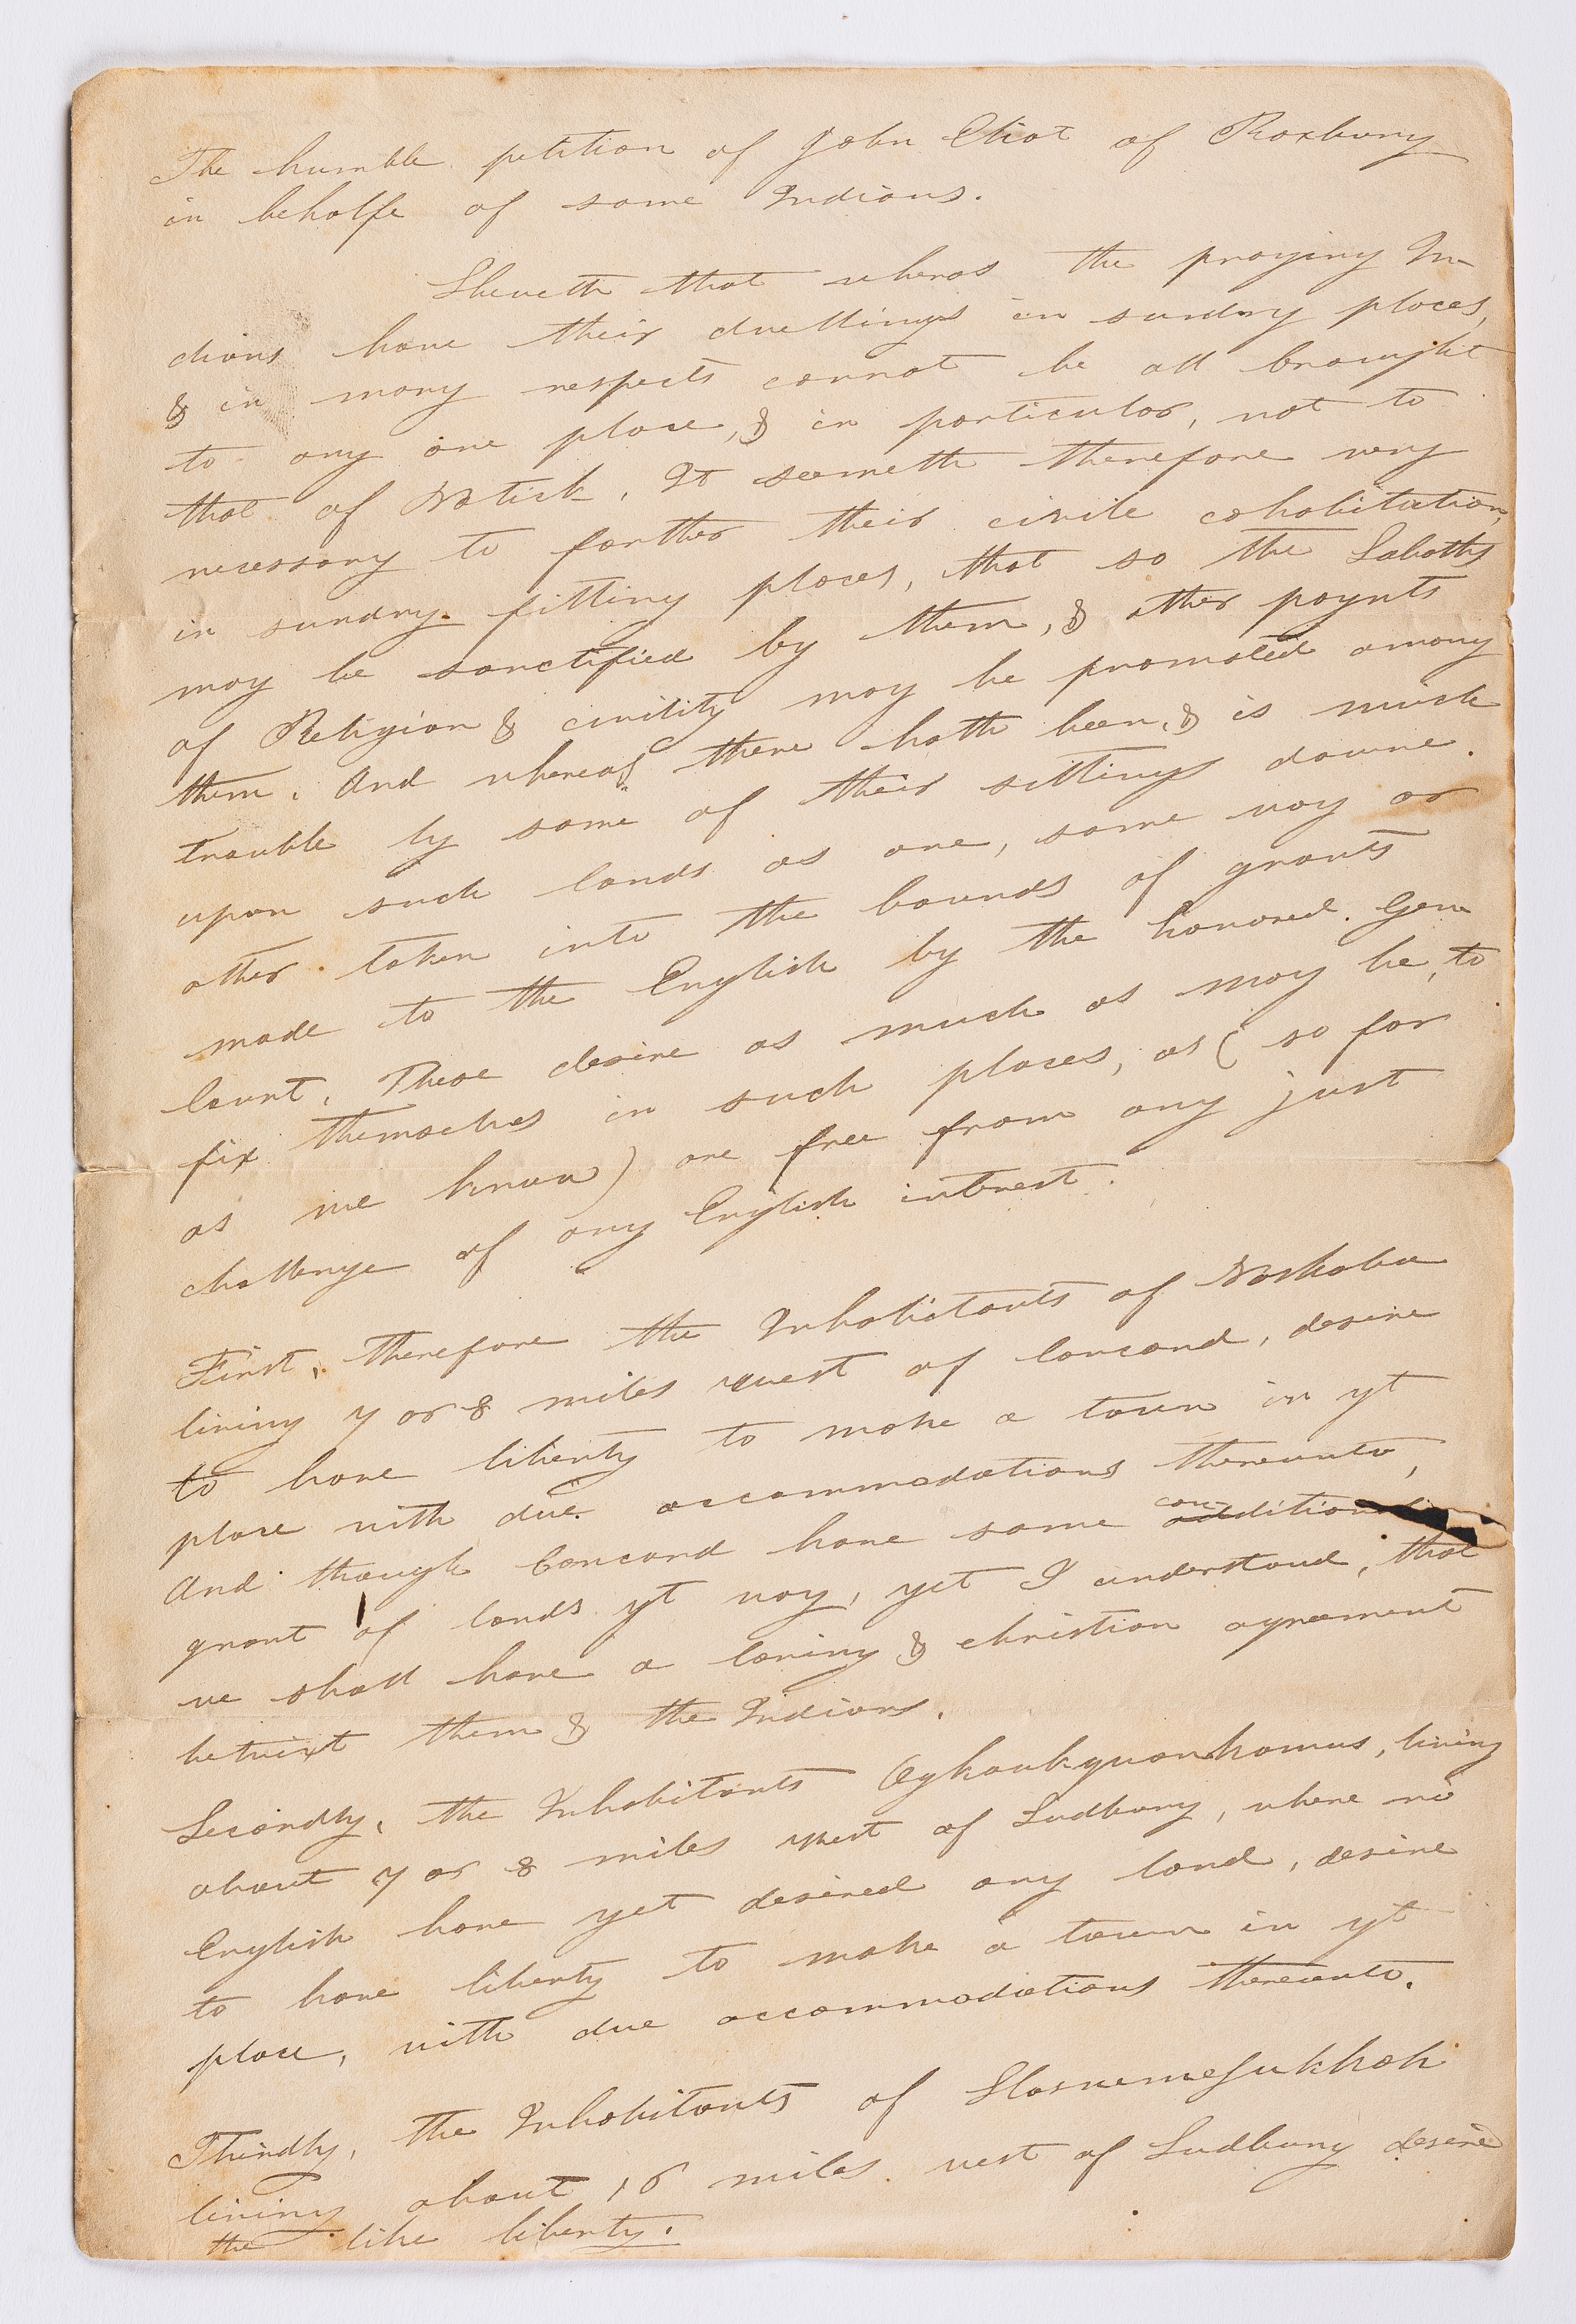 The humble petition of John Eliot of Roxbury
in behalfe of some Indians.
Sheweth that wheras the praying In-
dians have their dwellings in sundry places,
& in many respects cannot be all brought
to any one place, & in particular, not to
that of Natick. It seemeth therefore very
necessary to farther their civile cohabitation,
in sundry fitting places, that so the Sabaths
may be sanctified by them, & other poynts
of Religion & civility may be promoted among
them. And whereas there hath been, & is much
trouble by some of their sittings downe
upon such lands as are, some way or
other taken into the bounds of grants
made to the English by the honored Gen
Court, These desire as much as may be, to
fix themselves in such places, as ( so far
as we know) are free from any just
challenge of any English interest.
First, therefore the Inhabitants of Nashoba
living 7 or 8 miles west of Concord, desire
to have liberty to make a town in yt
place with due accommodations thereunto,
And though Concord have some conditional
grant of lands yt way, yet I understand, that
we shall have a loving & christian agreement
betwixt them & the Indians.
Secondly, the Inhabitants Ogkoukquonkamus, living
about 7 or 8 miles west of Sudbury, where no
English have yet desired any land, desire
to have liberty to make a town in yt
place, with due accommodations thereunto.
Thirdly, the Inhabitants of
living about 16 miles west of Sudbury desire
the like liberty.